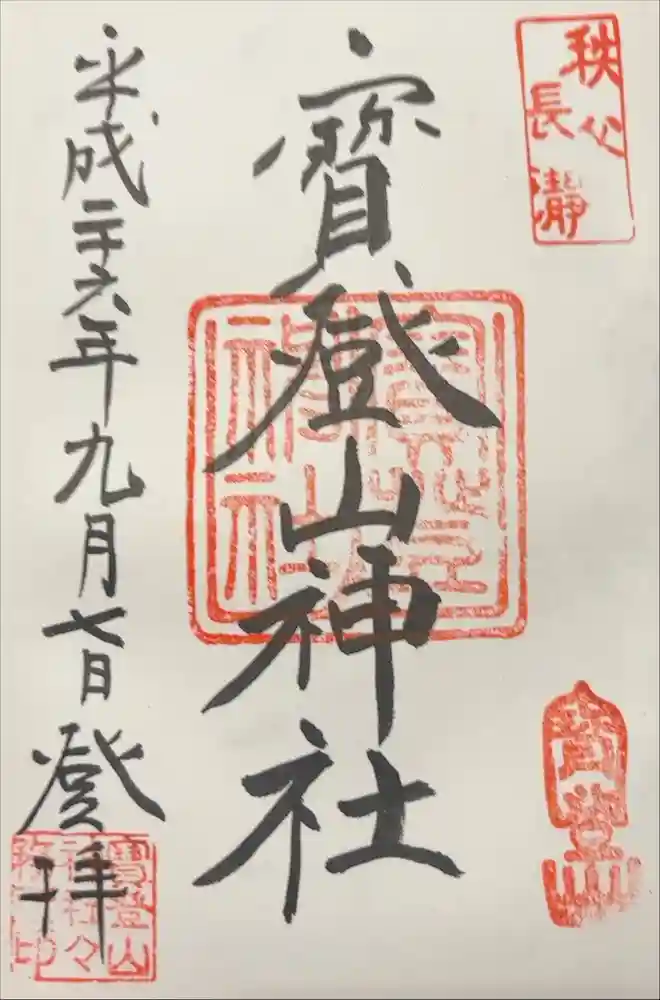 秩父
長瀞
寳登山神社
寳登山
平成二十六年九月七日登拝
寳登山
神社々
務所印